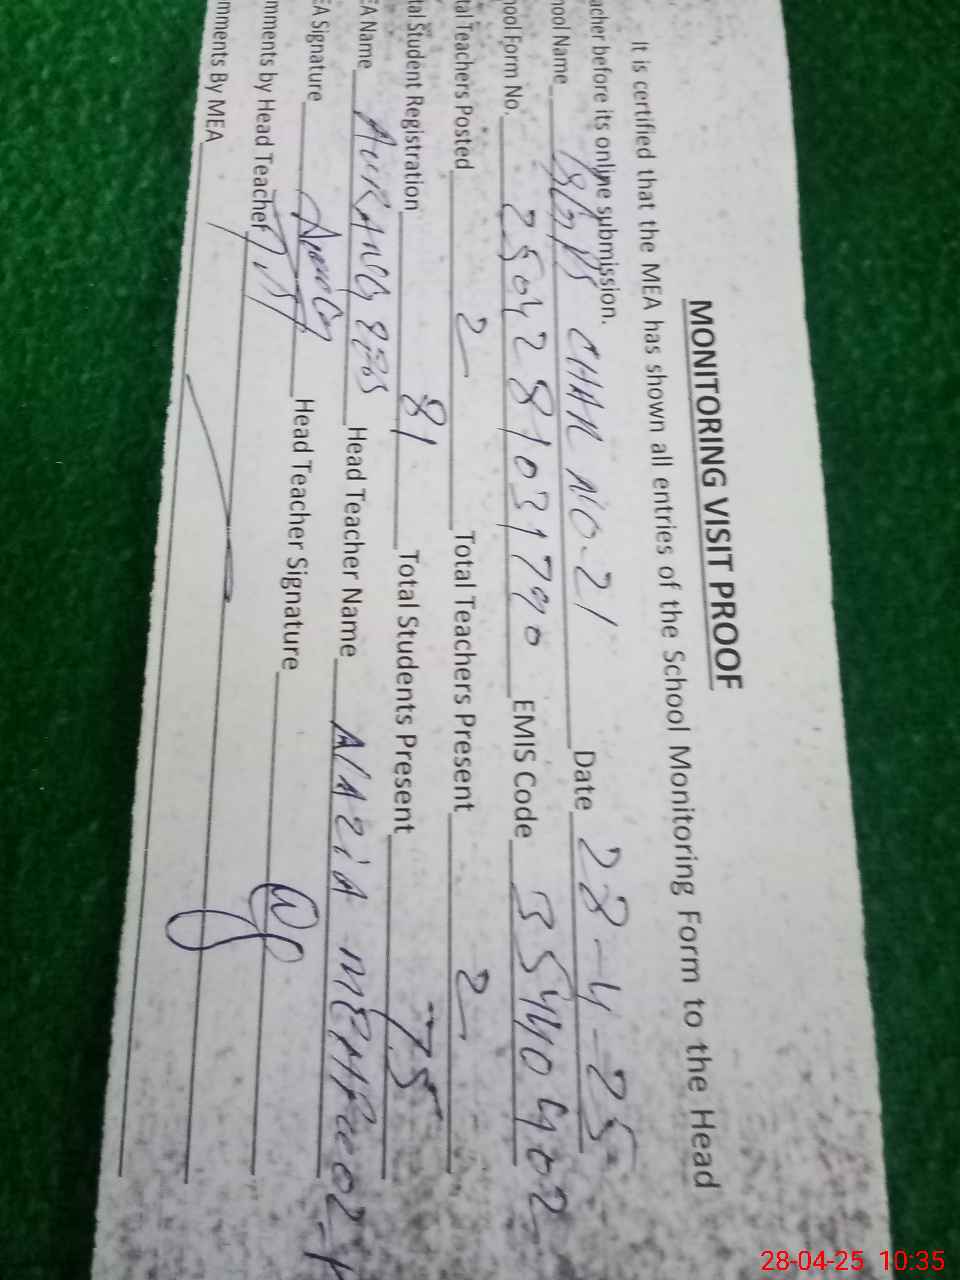 MONITORING VISIT PROOF
It is certified that the MEA has shown all entries of the School Monitoring Form to the Head
acher before its online submission.
hool Name CHAK NO-21 Date 28-4-25
hool Form No. 25042 81031790 EMIS Code 35440402
tal Teachers Posted 2 Total Teachers Present 2
tal Student Registration 81 Total Students Present 75
EA Name Head Teacher Name
EA Signature Head Teacher Signature
mments by Head Teacher
mments By MEA
28-04-25 10:35